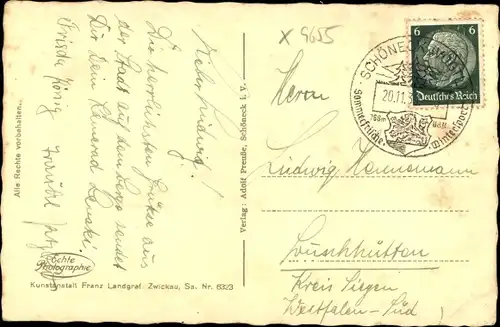 X 9655
6 6
Deutsches Reich
SCHÖNECK
20.11.3
Sommerfrische
Wintersport
768m
Herrn
Ludwig Hannemann
Buschhütten
Kreis Siegen
Westfalen-Süd
Kehr findung!
Die herrlichsten Grüße aus
der Stadt auf dem Berge sendet
Dir Dein Kamerad
Frieda König
Alle Rechte vorbehalten..
Verlag: Adolf Preuße, Schöneck i. V.
Echte
Photographie
Kunstanstalt Franz Landgraf, Zwickau, Sa. Nr. 6323